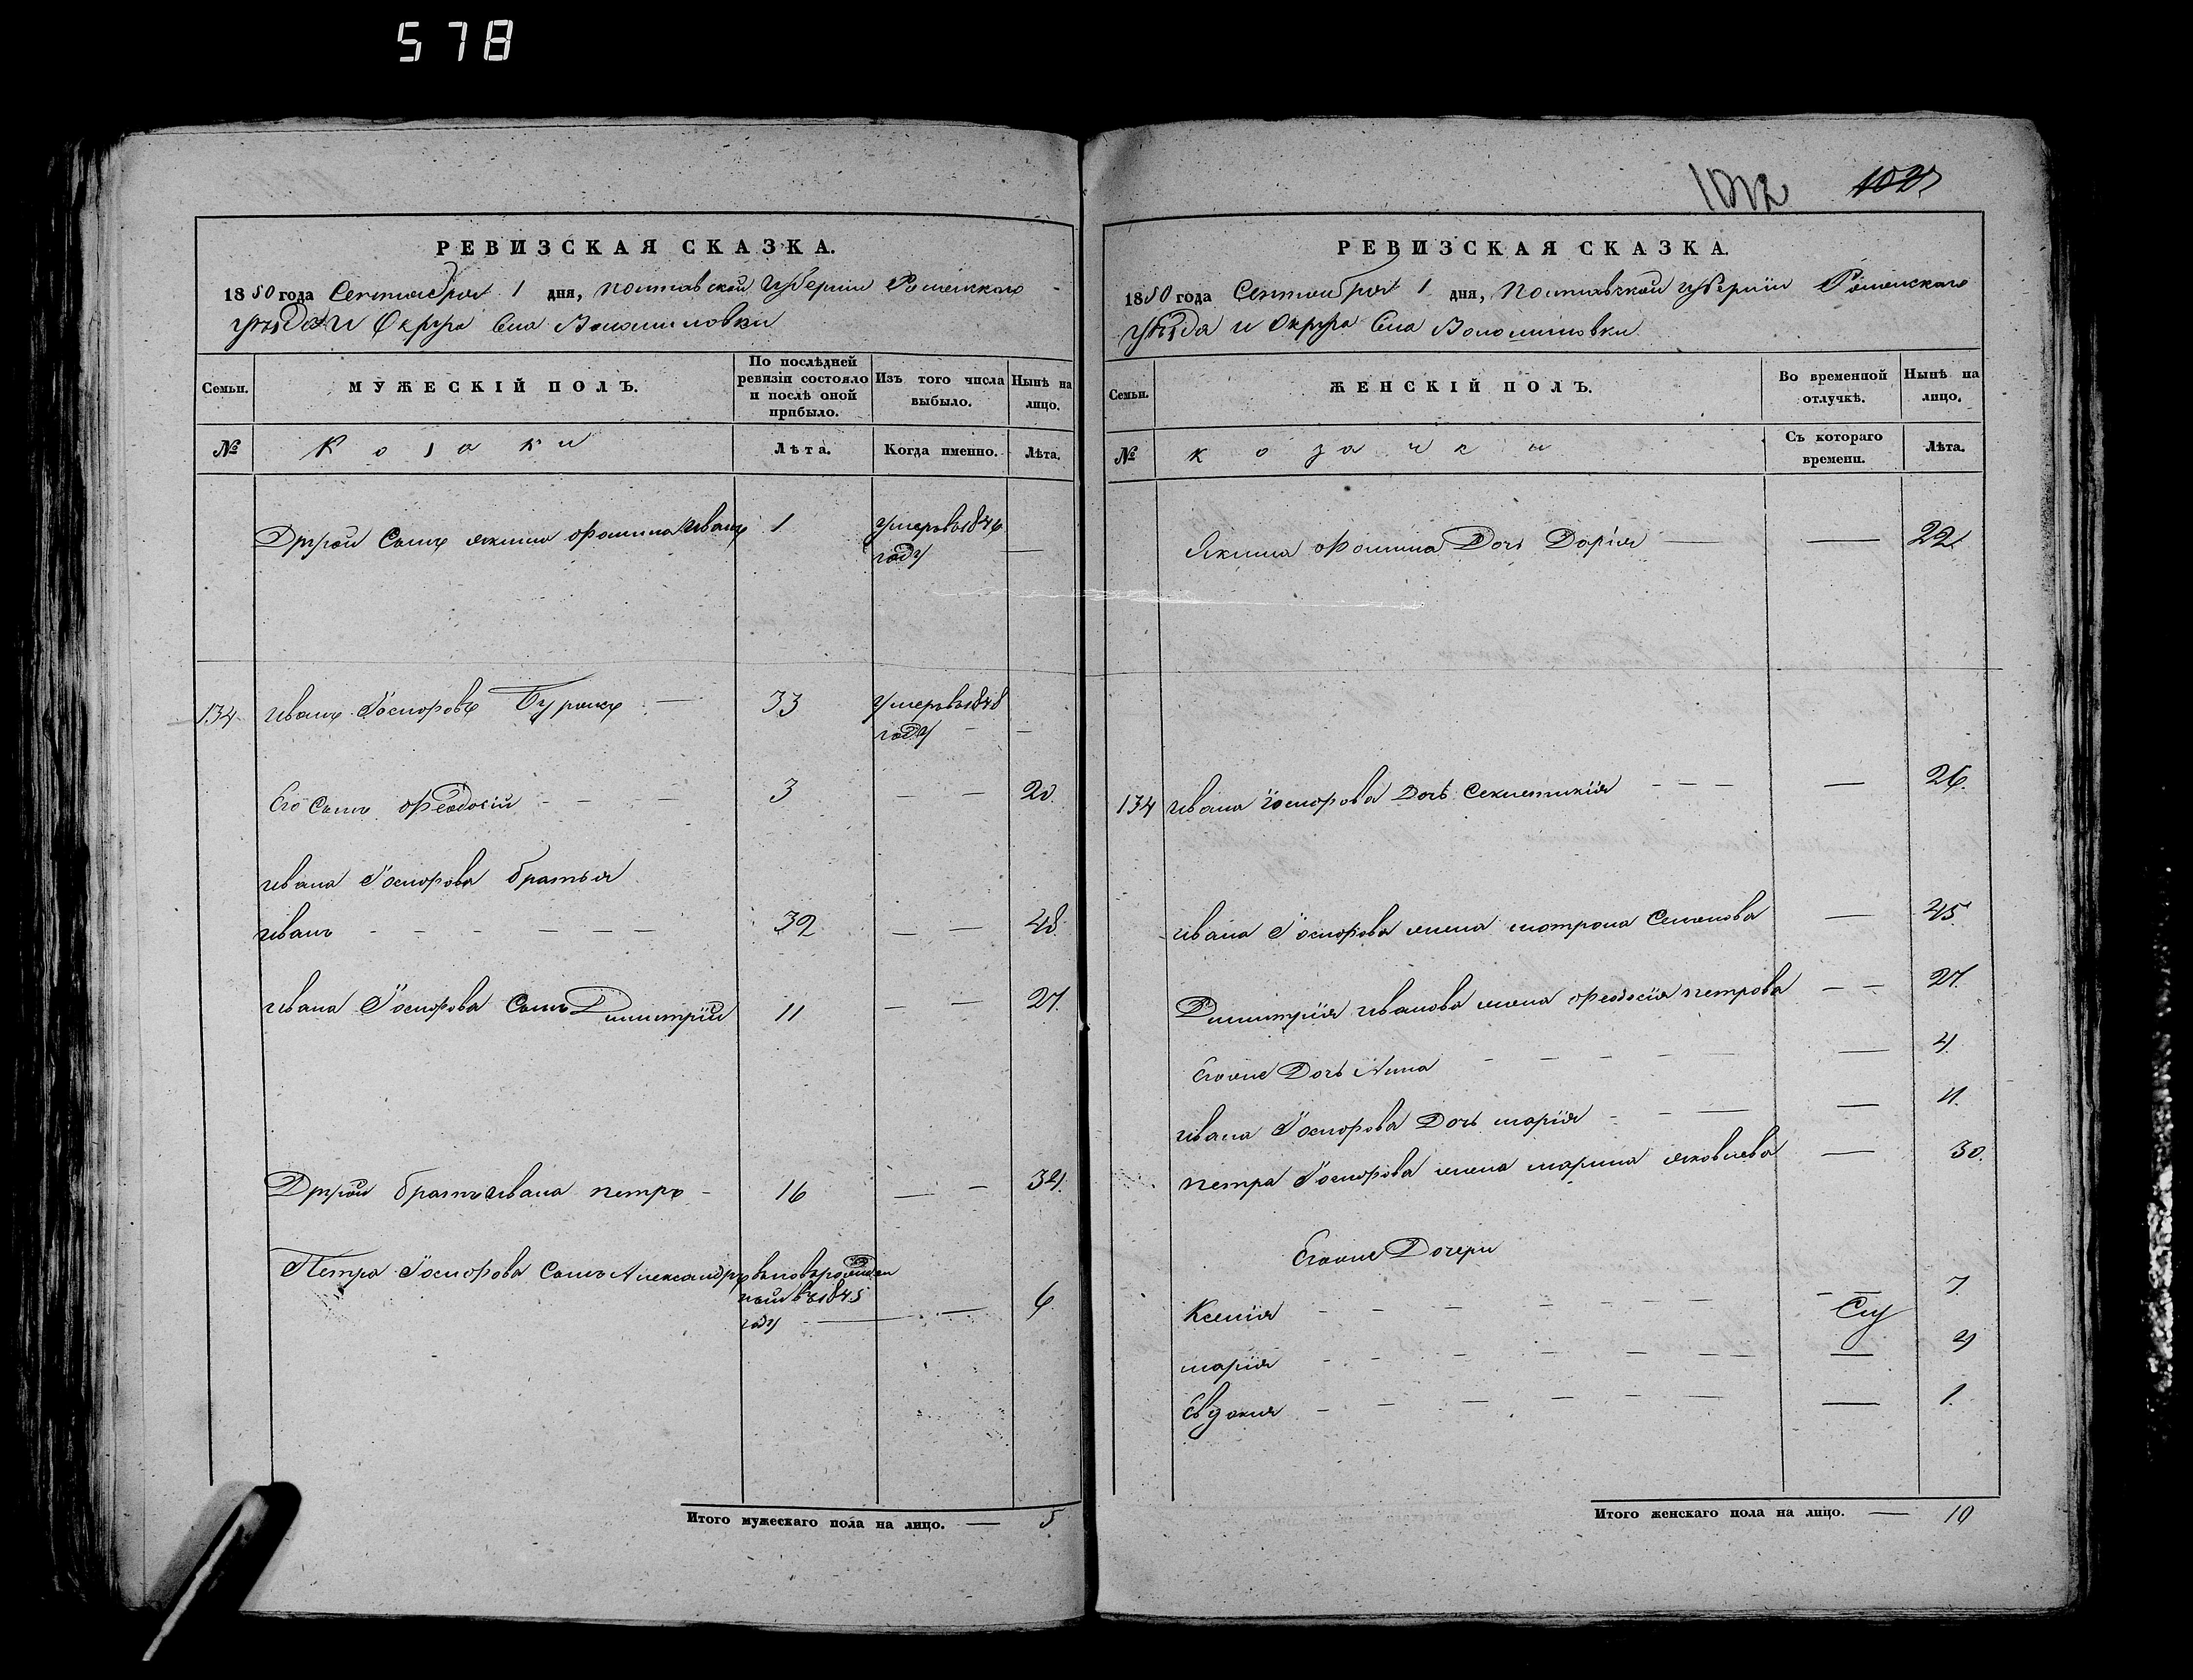 578
1012 1027
РЕВИЗСКАЯ СКАЗКА.
1850 года Сентября 1 дня, Полтавской Губернии Роменского
уѣзда и Округа Села Волошиновки
Семьи. МУЖЕСКІЙ ПОЛЪ. По послѣдней ревизіи состояло и послѣ оной прибыло. Изъ того числа выбыло. Нынѣ на лицо.
№ Козаки Лѣта. Когда именно. Лѣта.
Другой Сынъ якима Фомина Иванъ 1 умеръ въ 1846
году —
134 Иванъ Іосифовъ — 33 умеръ въ 1848
году — —
Его Сынъ Феодосій — — — 3 — — 20.
Ивана Іосифова братья
Иванъ — — — — — — 32 — — 48.
Ивана Іосифова Сынъ Димитрій 11 — — 27.
Другой братъ Ивана петръ — 16 — — 34.
Петра Іосифова Сынъ Александръ вновърожден
ной въ 1845
году — — 6.
Итого мужескаго пола на лицо. — 5
РЕВИЗСКАЯ СКАЗКА.
1850 года Сентября 1 дня, Полтавской губерніи Роменского
уѣзда и Округа Села Волошиновки
Семьи. ЖЕНСКІЙ ПОЛЪ. Во временной отлучкѣ. Нынѣ на лицо.
№ козачки Съ котораго времени. Лѣта.
Якима Фомина Дочь Дарія — — 22.
134 Ивана Іосифова Дочь Секлетикія — — — — 26.
Ивана Іосифова жена мотрона Семенова — 45
Димитрія Иванова жена Феодосія петрова — — 27.
Егоже Дочь Анна — — — — — — 4.
Ивана Іосифова Дочь марія — — — — 11.
петра Іосифова жена марина яковлева — 30.
Егоже Дочери
Ксенія — — — — — — — 7.
марія — — — — — — — —
Евдокия — — — — — — — 1.
Итого женскаго пола на лицо. — 10